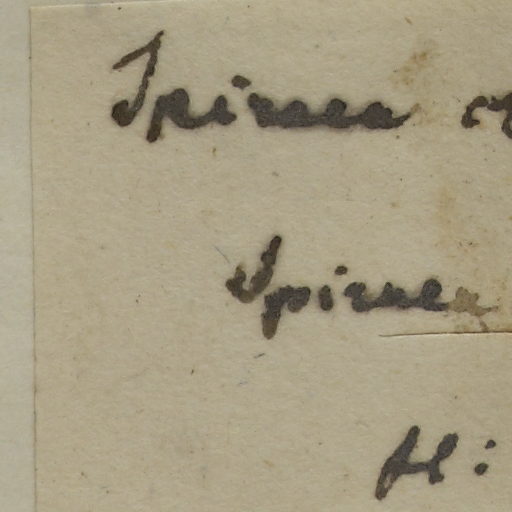 Spiraea
Spiraea
fl: